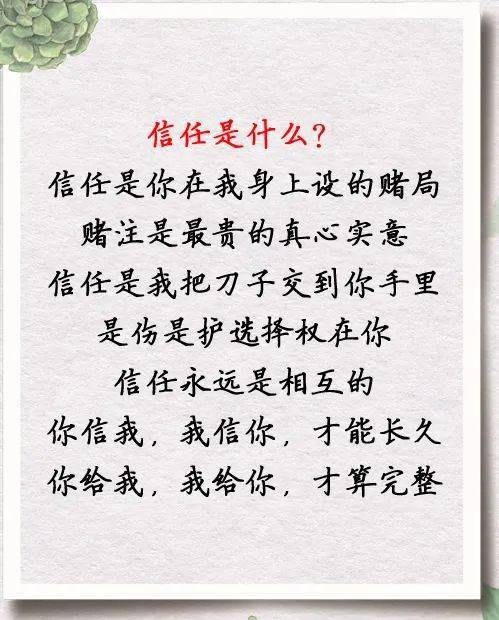 信任是什么?
信任是你在我身上设的赌局
赌注是最贵的真心实意
信任是我把刀子交到你手里
是伤是护选择权在你
信任永远是相互的
你信我，我信你，才能长久
你给我，我给你，才算完整